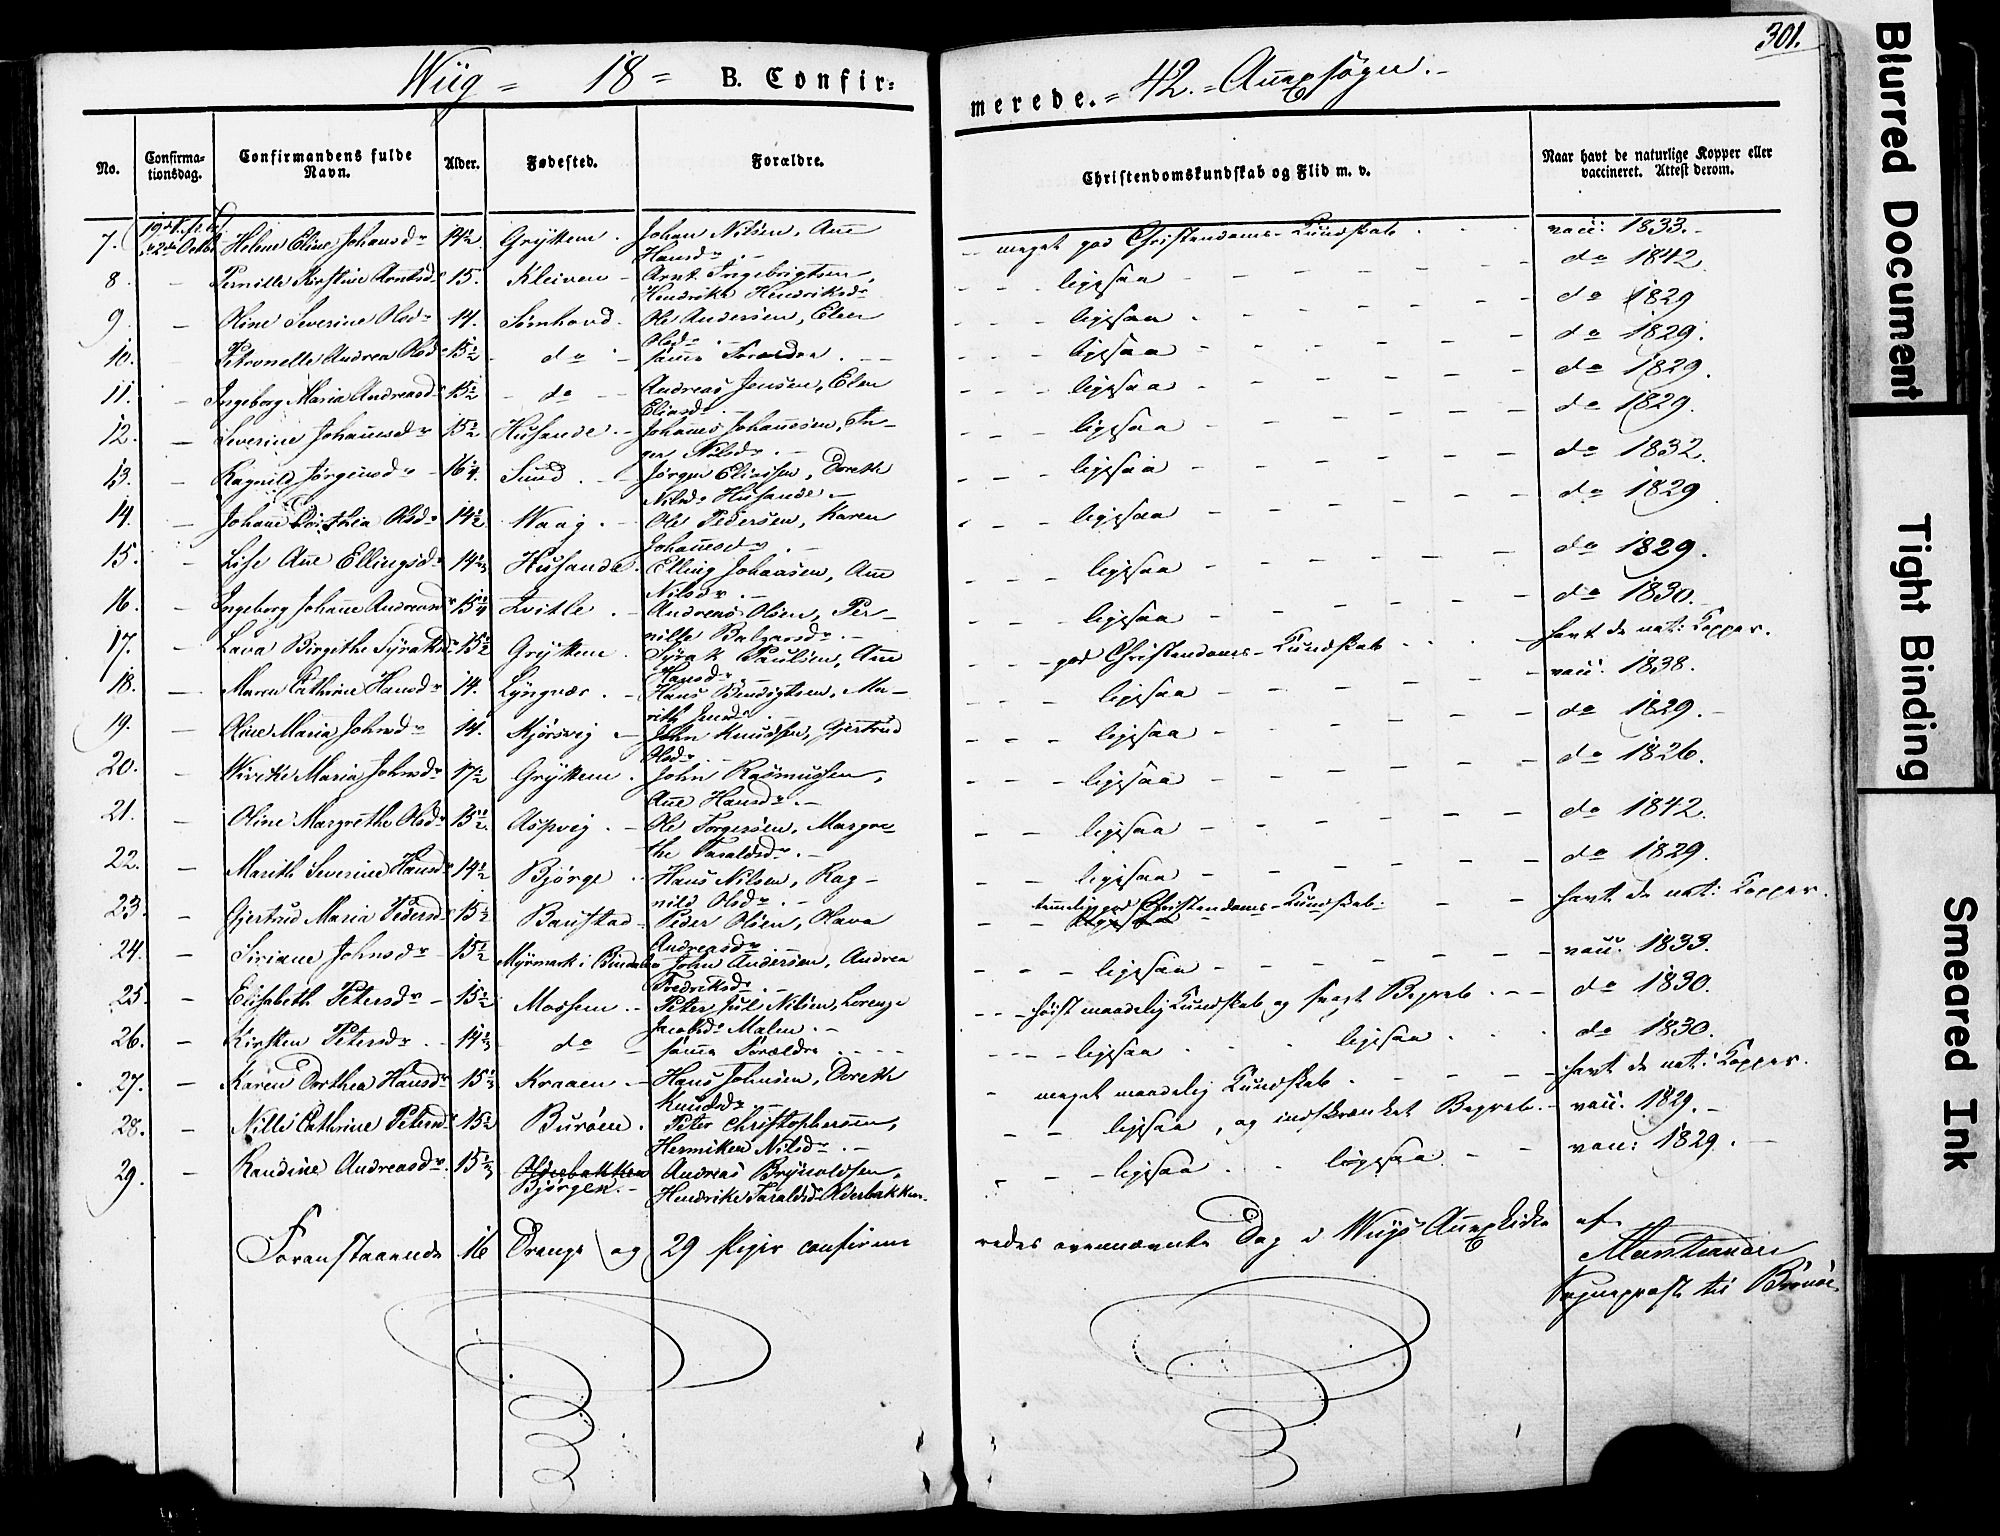 301.
Wiig = 18 = B. Confir:
merede. = 42. = Annexsogn. -
No. Confirma-tionsdag. Confirmandens fulde Navn. Alder. Fødested. Forældre. Christendomskundskab og Flid m. v. Naar havt de naturlige Kopper eller vaccineret. Attest derom.
7. Octbr Helene Eline Johansdr 14½. Gryttem. Johan Nilsen, Ane Hansdr. - meget god Christendoms-Kundskab vacc: 1833. -
8. - Pernille Kirstine Arntsdr 15. Kleiven - Arnt Ingebrigtsen, Hendrikke Hendriksdr - - - ligesaa - - - do 1842.
9. - Oline Severine Olsdr 14. Sømhovd. Ole Andersen, Elen Olsdr. - - - - ligesaa - - - do 1829
10. - Petronelle Andrea Olsdr 15½ do - samme Forældre. - - - - ligesaa - - - do 1829.
11. - Ingeborg Maria Andreasd 15½ - do - Andreas Jensen, Elen Eliasdr. - - - - ligesaa - - - do 1829.
12. - Severine Johannesdr 15½ Husande. - Johannes Johannesen, In-ger Nilsdr. - - - - ligesaa - - - do 1829.
13. - Ragnild Jørgensdr - 16¼. Sund. - Jørgen Eliassen, Dorethe Nilsdr Husande. - - - - ligesaa - - - do 1832.
14. - Johane Dorthea Olsdr 14½ Waag. - Ole Pedersen, Karen Johannesdr. - - - - ligesaa - - - do 1829
15. - Lise Ane Ellingsdr 14⅔ Husande. Elling Johansen, Ane Nilsdr. - - - - ligesaa - - - do 1829.
16. - Ingeborg Johane Andreasdr 15¼ - Andreas Olsen, Per-nille - - - ligesaa - - - do 1830. -
17. - Lava Birgithe Syraksdr 15½ Gryttem. Syrak Paulsen, Ane Hansdr. - - - - god Christendoms-Kundskab - havt de nat: Kopper.
18. - Maren Cathrine Hansdr 14. Lyngvær. - Hans Bendigtsen, Ma-rith - - - ligesaa - - - vacc: 1838.
19. - Oline Maria Johnsdr 14. Kjørsvig - John Knudsen, Gjertrud Olsdr. - - - - ligesaa - - - do 1829. -
20. - Maria Johnsdr 17½ Gryttem. John Rasmussen, Ane Hansdr. - - - - ligesaa - - - do 1826.
21. - Oline Margrethe Olsdr 15½. Aspveg. - Ole Torgersen, Margre-the Taraldsdr. - - - ligesaa - - - do 1842.
22. - Marith Severine Hansdr 14½ Bjørge. Hans Nilsen, Rag-nild Olsdr. - - - ligesaa - - - do 1829.
23. - Gjertrud Maria Pedersdr 15½ Baustad - Peder Olsen, Olava Andreasdr - - temmelig god Christendoms-Kundskab. - - havt de nat: Kopper.
24. - Siriane Johnsdr - 15½ Myrmark i Bindalen John Andersen, Andrea Fredriksdr. - - - - ligesaa - - - vacc: 1833.
25. - Elisabeth Petersdr - 15½ Mosheim. - Peter Juul Nilsen, Lorenze Jacobsdr Malen. - - - - høist maadelig Kundskab og svagt Begreb. - - do 1830.
26. - Kirsten Petersdr. - 14⅔ - do - samme Forældre - - - ligesaa ligesaa do 1830.
27. - Karen Dorthea Hansdr 15⅓ Kraaen - Hans Johnsen, Dorethe Knudsdr - - meget maadelig Kundskab - - - havt de nat: Kopper.
28. - Nille Cathrine Petersdr 15½ Burøen. Peter Christophersen, Henriken Nilsdr. - - - ligesaa, og indskrænket Begreb. - vacc. 1829. -
29. - Randine Andreasdr. 15⅔ Olderbakken Bjørgen. - Andreas Brynildsen, Hendrike Taraldsdr Olderbakken. - ligesaa. ligesaa - - vacc: 1829. -
Foranstaaende 16 Drenge og 29 Piger confirme
redes ovennævnte Dag i Wiigs Annexkirke af
Sognepræst til Brønøe
Blurred Document
Tight Binding
Smeared Ink